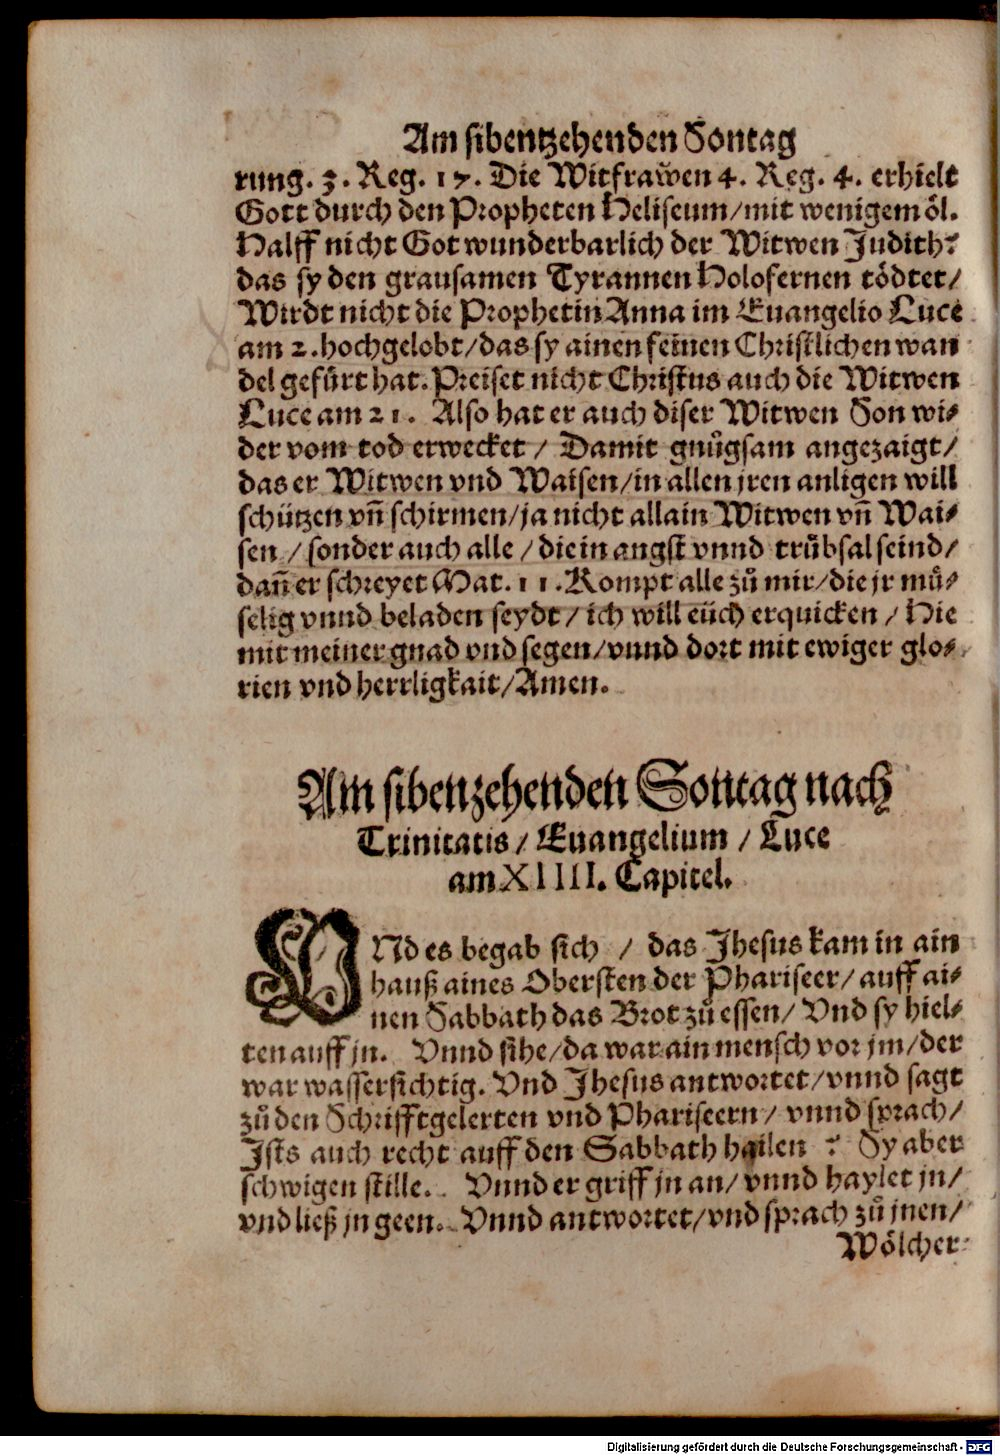 Am sibentzehenden Sontag
rung. 3. Reg. 17. Die Witfrawen 4. Reg. 4. erhielt
Gott durch den Propheten Heliseum/mit wenigem öl.
Halff nicht Got wunderbarlich der Witwen Judith?
das sy den grausamen Tyrannen Holofernen tödtet/
Wirdt nicht die Prophetin Anna im Euangelio Luce
am 2. hochgelobt/das sy ainen feinen Christlichen wan
del gefürt hat. Preiset nicht Christus auch die Witwen
Luce am 21. Also hat er auch diser Witwen Son wi⸗
der vom tod erwecket / Damit gnůgsam angezaigt/
das er Witwen vnd Waisen/in allen jren anligen will
schützen vñ schirmen/ja nicht allain Witwen vñ Wai⸗
sen / sonder auch alle / die in angst vnnd trůbsal seind/
dañ er schreyet Mat. 11. Kompt alle zů mir/die jr mů⸗
selig vnnd beladen seydt / ich will eüch erquicken / Hie
mit meiner gnad vnd segen/vnnd dort mit ewiger glo⸗
rien vnd herrligkait/Amen.
Am sibenzehenden Sontag nach
Trinitatis / Euangelium / Luce
am XIIII. Capitel.
VNd es begab sich / das Jhesus kam in ain
hauß aines Obersten der Phariseer/ auff ai⸗
nen Sabbath das Brot zů essen/ Vnd sy hiel⸗
ten auff jn. Vnnd sihe/da war ain mensch vor jm/der
war wassersichtig. Vnd Jhesus antwortet/vnnd sagt
zů den Schrifftgelerten vnd Phariseern/ vnnd sprach/
Jsts auch recht auff den Sabbath hailen ? Sy aber
schwigen stille. Vnnd er griff jn an/ vnnd haylet jn/
vnd ließ jn geen. Vnnd antwortet/vnd sprach zů jnen/
Wölcher
Digitalisierung gefördert durch die Deutsche Forschungsgemeinschaft - DFG